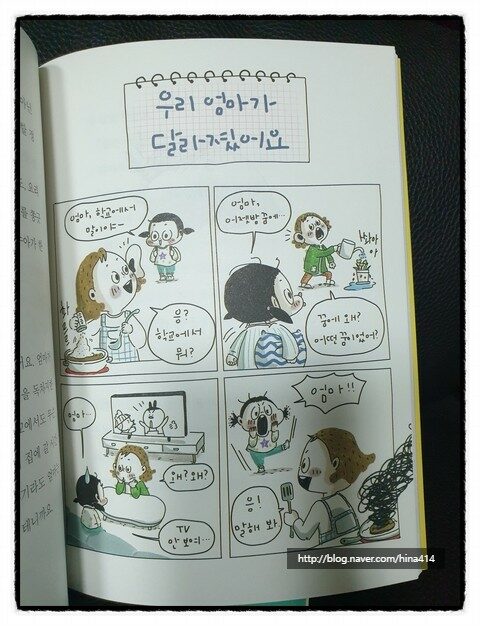 우리 엄마가
달라졌어요
엄마, 학교에서
말이야~
응?
학교에서
뭐?
엄마,
어젯밤 꿈에…
촤아아
꿈에 왜?
어떤 꿈이었어?
엄마…
왜? 왜?
TV
안 보여…
엄마!!
응!
말해 봐
http://blog.naver.com/hina414